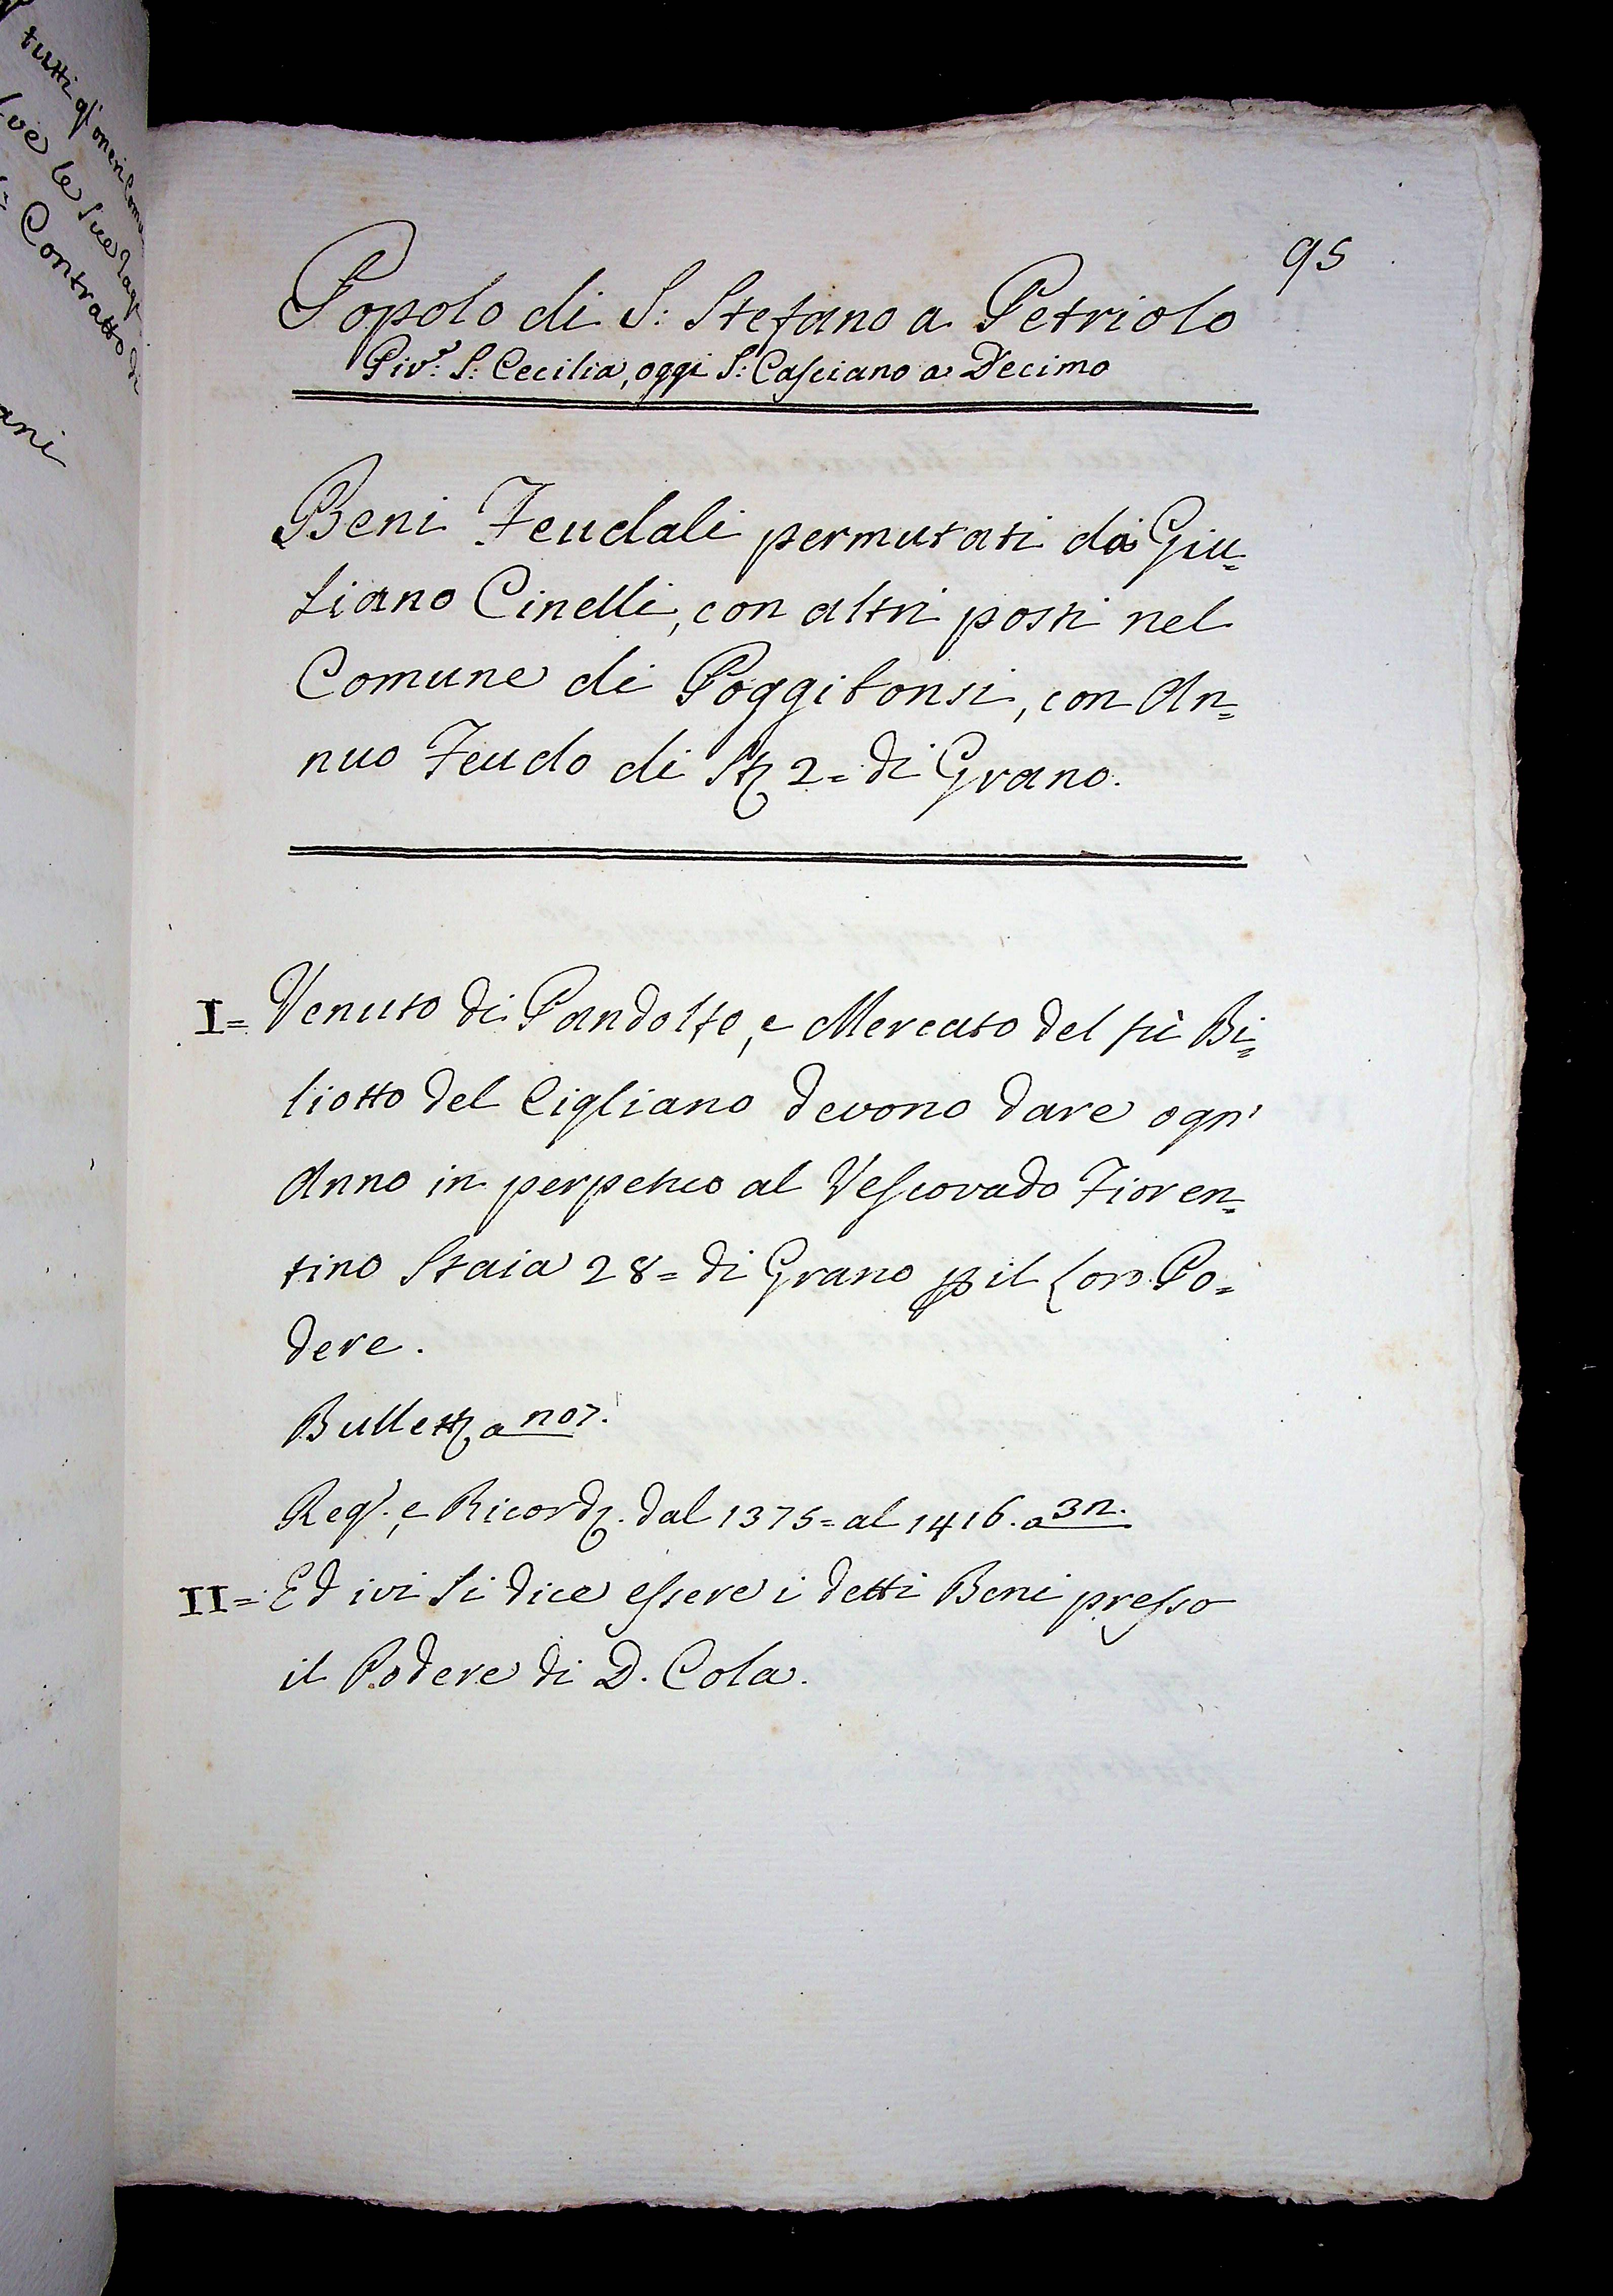 tutti gl'oneri
le sue rag
Contratto di
ani
95
Popolo di S: Stefano a Petriolo
Piv:e S: Cecilia, oggi S: Casciano a Decimo
Beni Feudali permutati da Giu=
liano Cinelli, con altri posti nel
Comune di Poggibonsi, con An=
nuo Feudo di Sta 2= di Grano.
I= Venuto di Pandolfo, e Mercato del fù Bi=
liotto del Cigliano devono dare ogn'
Anno in perpetuo al Vescovado Fioren=
tino Staia 28= di Grano p il Loro Po=
dere.
Bullett a 107.
Reg. e Ricord. dal 1375= al 1416. a 32.
II= Ed ivi si dice essere i detti Beni presso
il Podere di D. Cola.